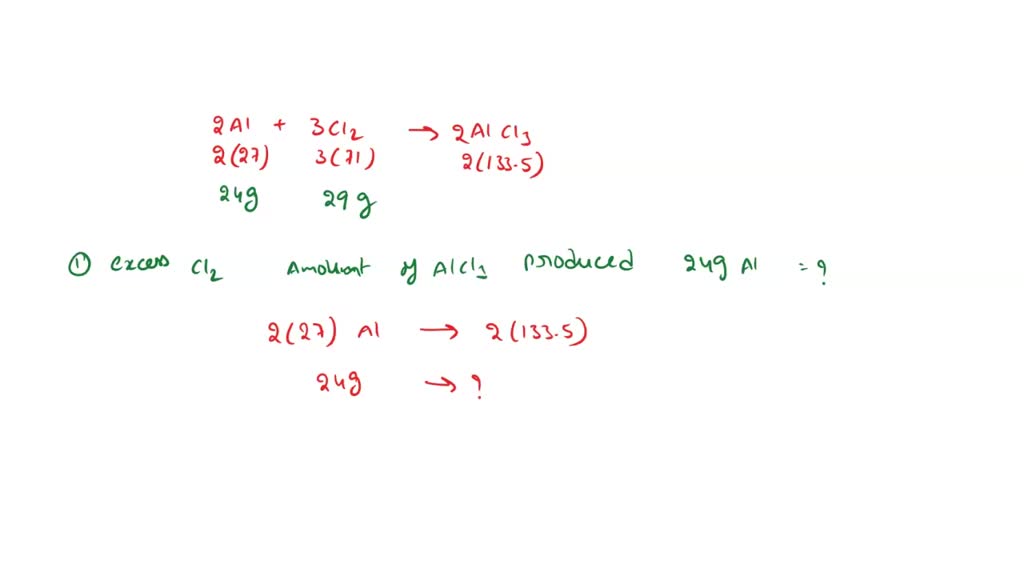 2Al + 3Cl₂ → 2AlCl₃
2(27) 3(71) 2(133.5)
24g 29g
① excess Cl₂ Amount of AlCl₃ produced 24g Al = ?
2(27) Al → 2(133.5)
24g → ?